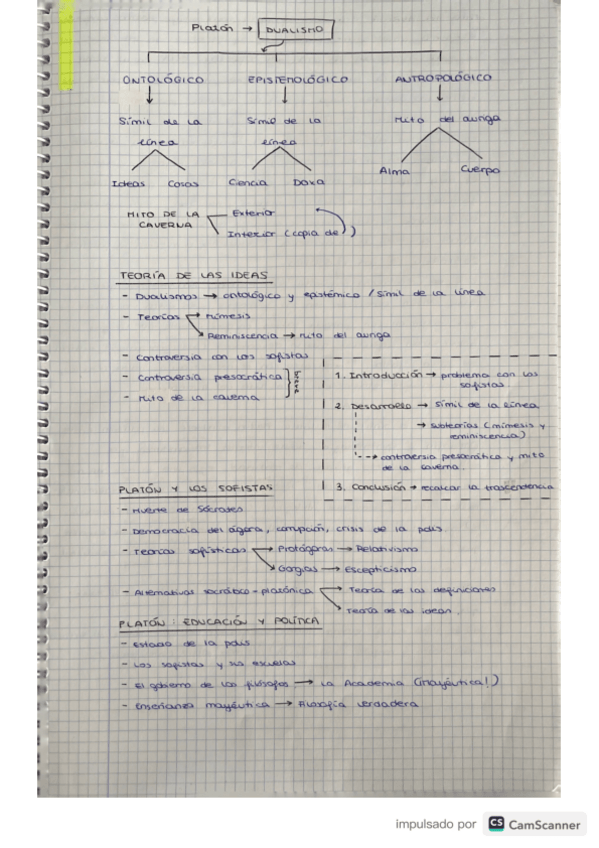 Platón → DUALISMO
ONTOLÓGICO EPISTEMOLÓGICO ANTROPOLÓGICO
Símil de la línea Símil de la línea Mito del auriga
Ideas Cosas Ciencia Doxa Alma Cuerpo
MITO DE LA CAVERNA
Exterior
Interior (copia de)
TEORÍA DE LAS IDEAS
- Dualismos → ontológico y epistémico / Símil de la línea
- Teorías → mímesis
→ Reminiscencia → mito del auriga
- Controversia con los sofistas
- Controversia presocrática
- Mito de la caverna
1. Introducción → problema con los sofistas.
2. Desarrollo → símil de la línea
→ subteorías (mímesis y reminiscencia)
→ controversia presocrática y mito de la caverna.
3. Conclusión → recalcar la trascendencia
PLATÓN Y LOS SOFISTAS
- Muerte de Sócrates
- Democracia del ágora, corrupción, crisis de la polis.
- Teorías sofísticas → Protágoras → Relativismo
→ Gorgias → Escepticismo
- Alternativas socrático-platónica → Teoría de las definiciones
→ Teoría de las ideas.
PLATÓN: EDUCACIÓN Y POLÍTICA
- Estado de la polis
- Los sofistas y sus escuelas
- El gobierno de los filósofos → La Academia (mayéutica!)
- Enseñanza mayéutica → Filosofía verdadera
impulsado por CS CamScanner